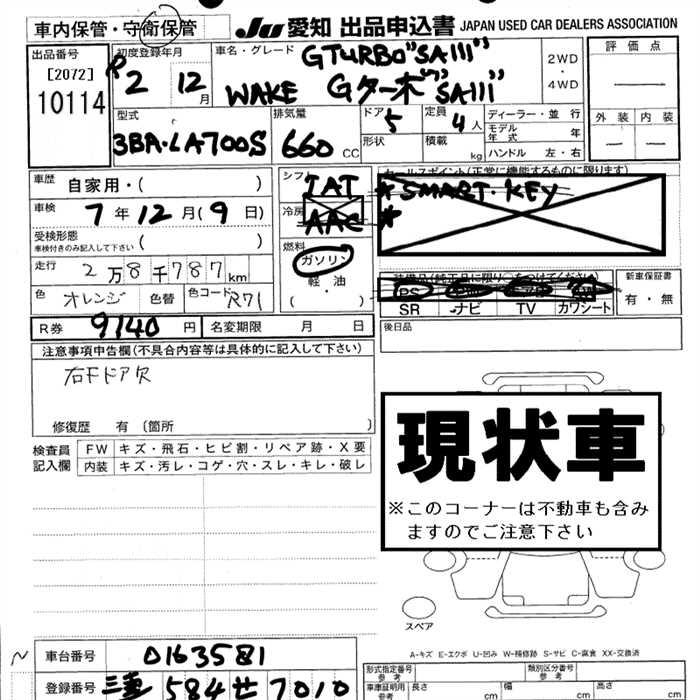 車内保管・守衛保管 JU 愛知 出品申込書 JAPAN USED CAR DEALERS ASSOCIATION
出品番号
[2072]
10114
初度登録年月
R2 12月
車名・グレード
GTURBO"SAIII"
WAKE Gターボ"SAIII"
2WD
・
4WD
評価点
外装 内装
型式
3BA・LA700S
排気量
660 CC
ドア 5
定員 4人
形状
積載 kg
ディーラー・並行
モデル年式 年
ハンドル 左・右
車歴 自家用・( )
車検 7年12月(9日)
受検形態
車検付きのみ記入して下さい ( )
走行 2万8千787km
色 オレンジ 色替 色コード R71
シフト IAT
冷房 AAC
燃料
ガソリン
軽・油
( ・ )
セールスポイント(正常に機能するものに限ります)
*SMART・KEY
*
SR ナビ TV カワシート
新車保証書
有・無
R券 9140円 名変期限 月 日
後日品
注意事項申告欄(不具合内容等は具体的に記入して下さい)
右Fドア欠
修復歴 有 (箇所 )
検査員記入欄
FW キズ・飛石・ヒビ割・リペア跡・X要
内装 キズ・汚レ・コゲ・穴・スレ・キレ・破レ
現状車
※このコーナーは不動車も含みますのでご注意下さい
スペア
A-キズ E-エクボ U-凹み W-補修跡 S-サビ C-腐食 XX-交換済
車台番号 0163581
登録番号 三重 584 せ 7010
形式指定番号 参考
類別区分番号 参考
車庫証明用 参考 長さ cm 幅 cm 高さ cm